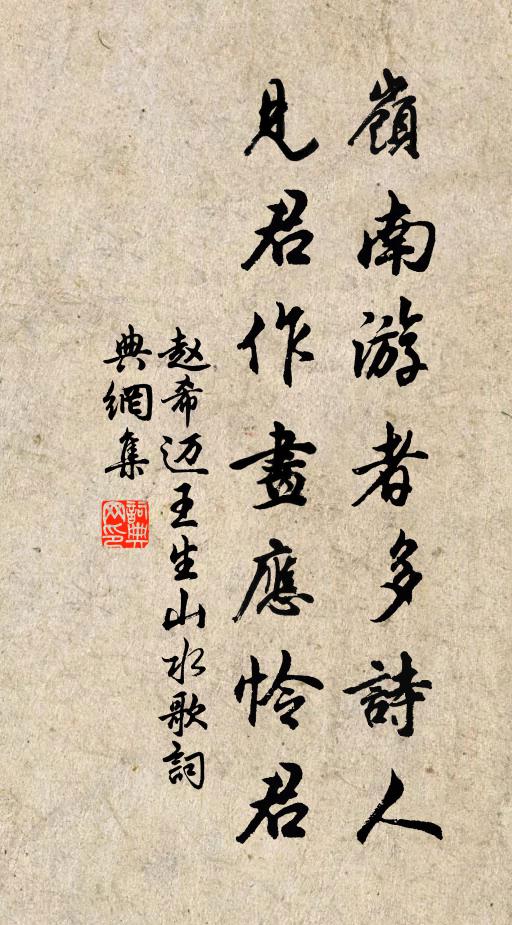 嶺南游者多詩人
見君作畫應怜君
赵希迈王生山水歌詞
典網集
詞典網印